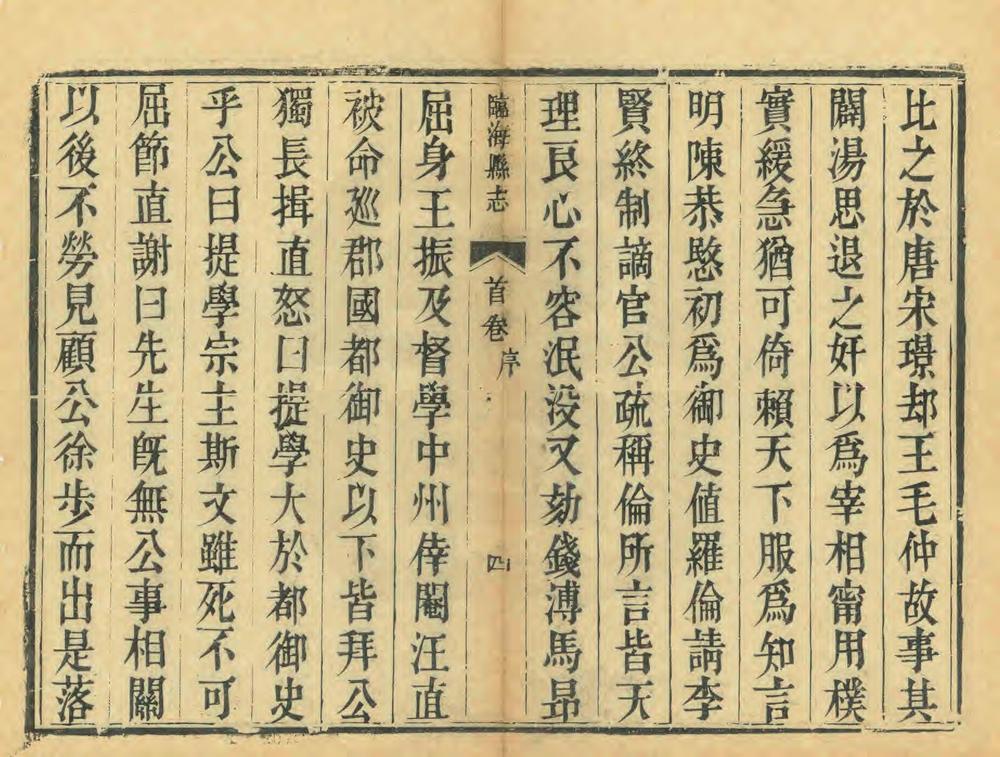 比之於唐宋璟却王毛仲故事其
闢湯思退之奸以爲宰相甯用樸
實緩急猶可倚賴天下服爲知言
明陳恭愍初爲御史值羅倫請李
賢終制謫官公疏稱倫所言皆天
理良心不容泯没又劾錢溥馬昻
臨海縣志
首卷
序
四
屈身王振及督學中州倖閹汪直
被命巡郡國都御史以下皆拜公
獨長揖直怒曰提學大於都御史
乎公曰提學宗主斯文雖死不可
屈節直謝曰先生旣無公事相關
以後不勞見顧公徐步而出是落